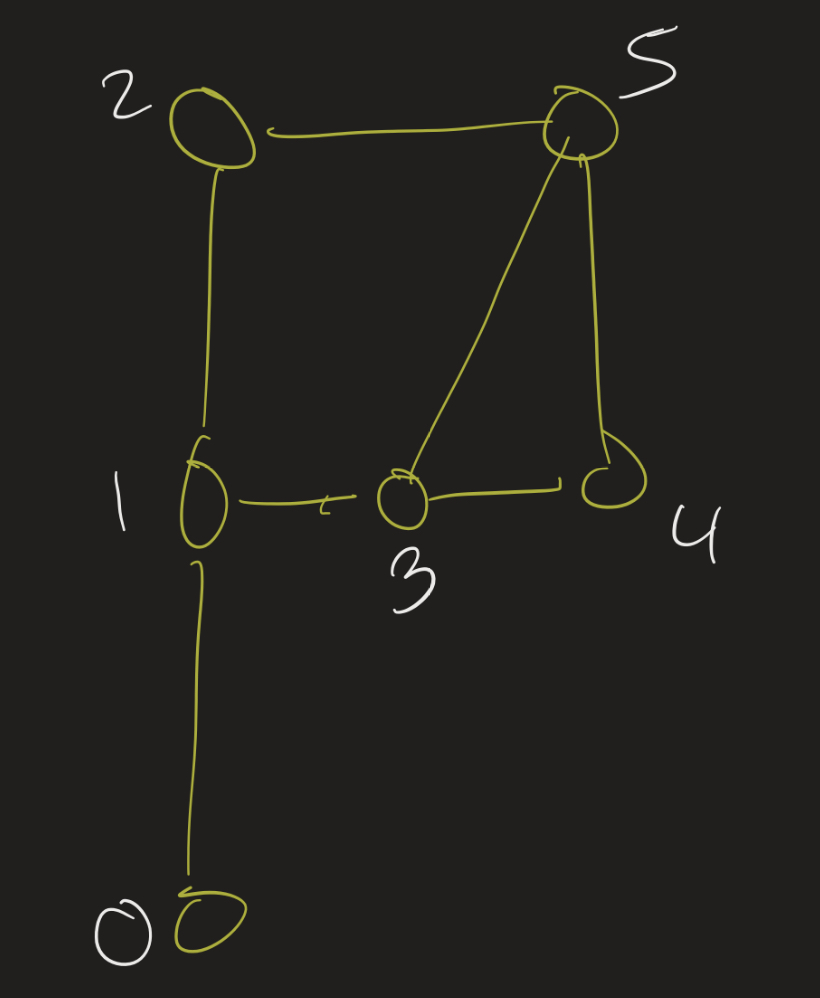 2
5
1
3
4
0